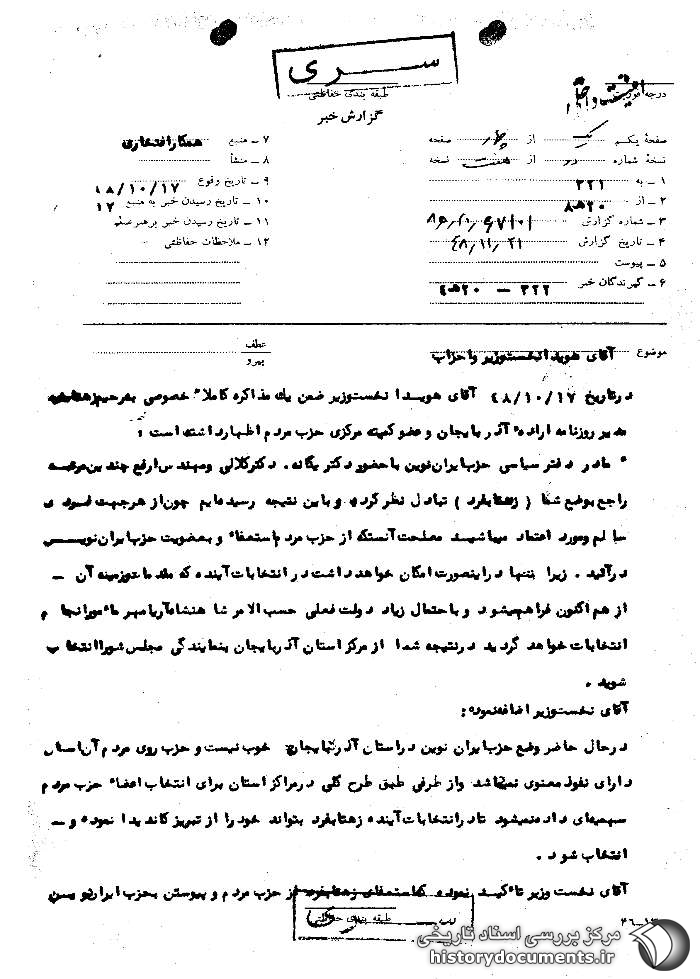 سری
طبقه بندی حفاظتی
گزارش خبر
درجه فوریت
صفحهٔ یکم از چهار صفحه
نسخهٔ شماره از هفت نسخه
۱ ـ به ۳۲۱
۲ ـ از ۲۰ ه ۸
۳ ـ شماره گزارش
۴ ـ تاریخ گزارش ۴۸/۱۱/۲۱
۵ ـ پیوست
۶ ـ گیرندگان خبر ۳۲۲ ـ ۲۰ ه ٤
۷ ـ منبع همکار افتخاری
۸ ـ منشأ
۹ ـ تاریخ وقوع ۴۸/۱۰/۱۷
۱۰ ـ تاریخ رسیدن خبر به منبع ۱۷
۱۱ ـ تاریخ رسیدن خبر برهبر عملیات
۱۲ ـ ملاحظات حفاظتی
موضوع آقای هویدا نخست‌وزیر و احزاب
عطف
پیرو
درتاریخ ۴۸/۱۰/۱۷ آقای هویدا نخست‌وزیر ضمن یك مذاكره كاملا" خصوصی به رحیم زهتابفرد
مدیر روزنامه اراده آذربایجان و عضو کمیته مرکزی حزب مردم اظهار داشته است :
" ما در دفتر سیاسی حزب ایران نوین با حضور دکتر یگانه، دکتر کلالی و مهندس ارفع چندین مرتبه
راجع بوضع شما ( زهتابفرد ) تبادل نظر کرده و باین نتیجه رسیده‌ایم چون از هر جهت فردی
سالم و مورد اعتماد میباشید مصلحت آنستکه از حزب مردم استعفاء و بعضویت حزب ایران نوین
درآئید . زیرا تنها در اینصورت امکان خواهد داشت در انتخابات آینده که مقدمات و زمینه آن ـ
از هم اکنون فراهم میشود و با احتمال زیاد دولت فعلی حسب الامر شاهنشاه آریامهر مأمور انجام
انتخابات خواهد گردید در نتیجه شما از مرکز استان آذربایجان بنمایندگی مجلس شورا انتخاب
شوید .
آقای نخست‌وزیر اضافه نموده :
درحال حاضر وضع حزب ایران نوین در استان آذربایجان خوب نیست و حزب روی مردم آن سامان
دارای نفوذ معنوی نمیباشد و از طرفی طبق طرح کلی در مراکز استان برای انتخاب اعضاء حزب مردم
سهمیه‌ای داده نمیشود تا در انتخابات آینده زهتابفرد بتواند خود را از تبریز کاندیدا نموده و ـ
انتخاب شود .
آقای نخست وزیر تاکید نموده که استعفای زهتابفرد از حزب مردم و پیوستن بحزب ایران نوین
طبقه بندی حفاظتی
سری
مرکز بررسی اسناد تاریخی
historydocuments.ir